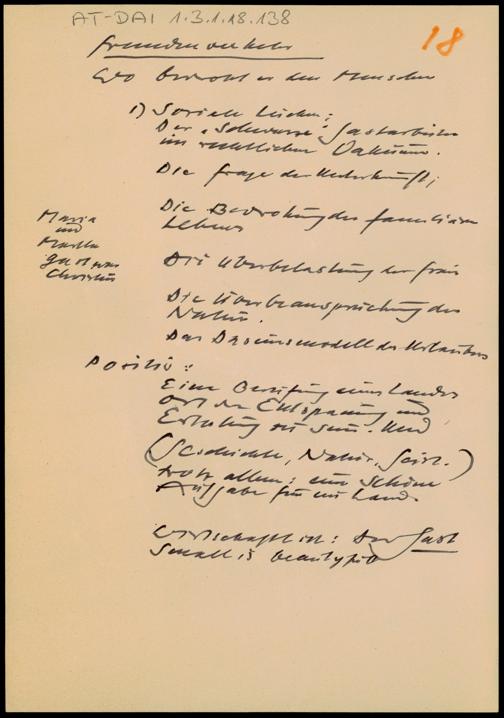 AT-DAI 1.3.1.18.138
18
Fremdenverkehr
Wo bedroht er den Menschen
1) Soziale Lücken:
Der "schwarze" Gastarbeiter
im rechtlichen Vakuum.
Die Frage der Unterkunft;
Die Bedrohung des familiären
Lebens
Maria
und
Martha
Christus
Die Überbelastung der Frau
Die Überbeanspruchung der
Natur.
Das Daseinsmodell des Urlaubers
Positiv:
Eine Berufung eines Landes
Ort der Entspannung und
Erholung zu sein. Und
(Geschichte, Natur, Geist.)
trotz allem: eine schöne
Aufgabe für ein Land.
Wirtschaftlich: Der Gast
Small is beautyful